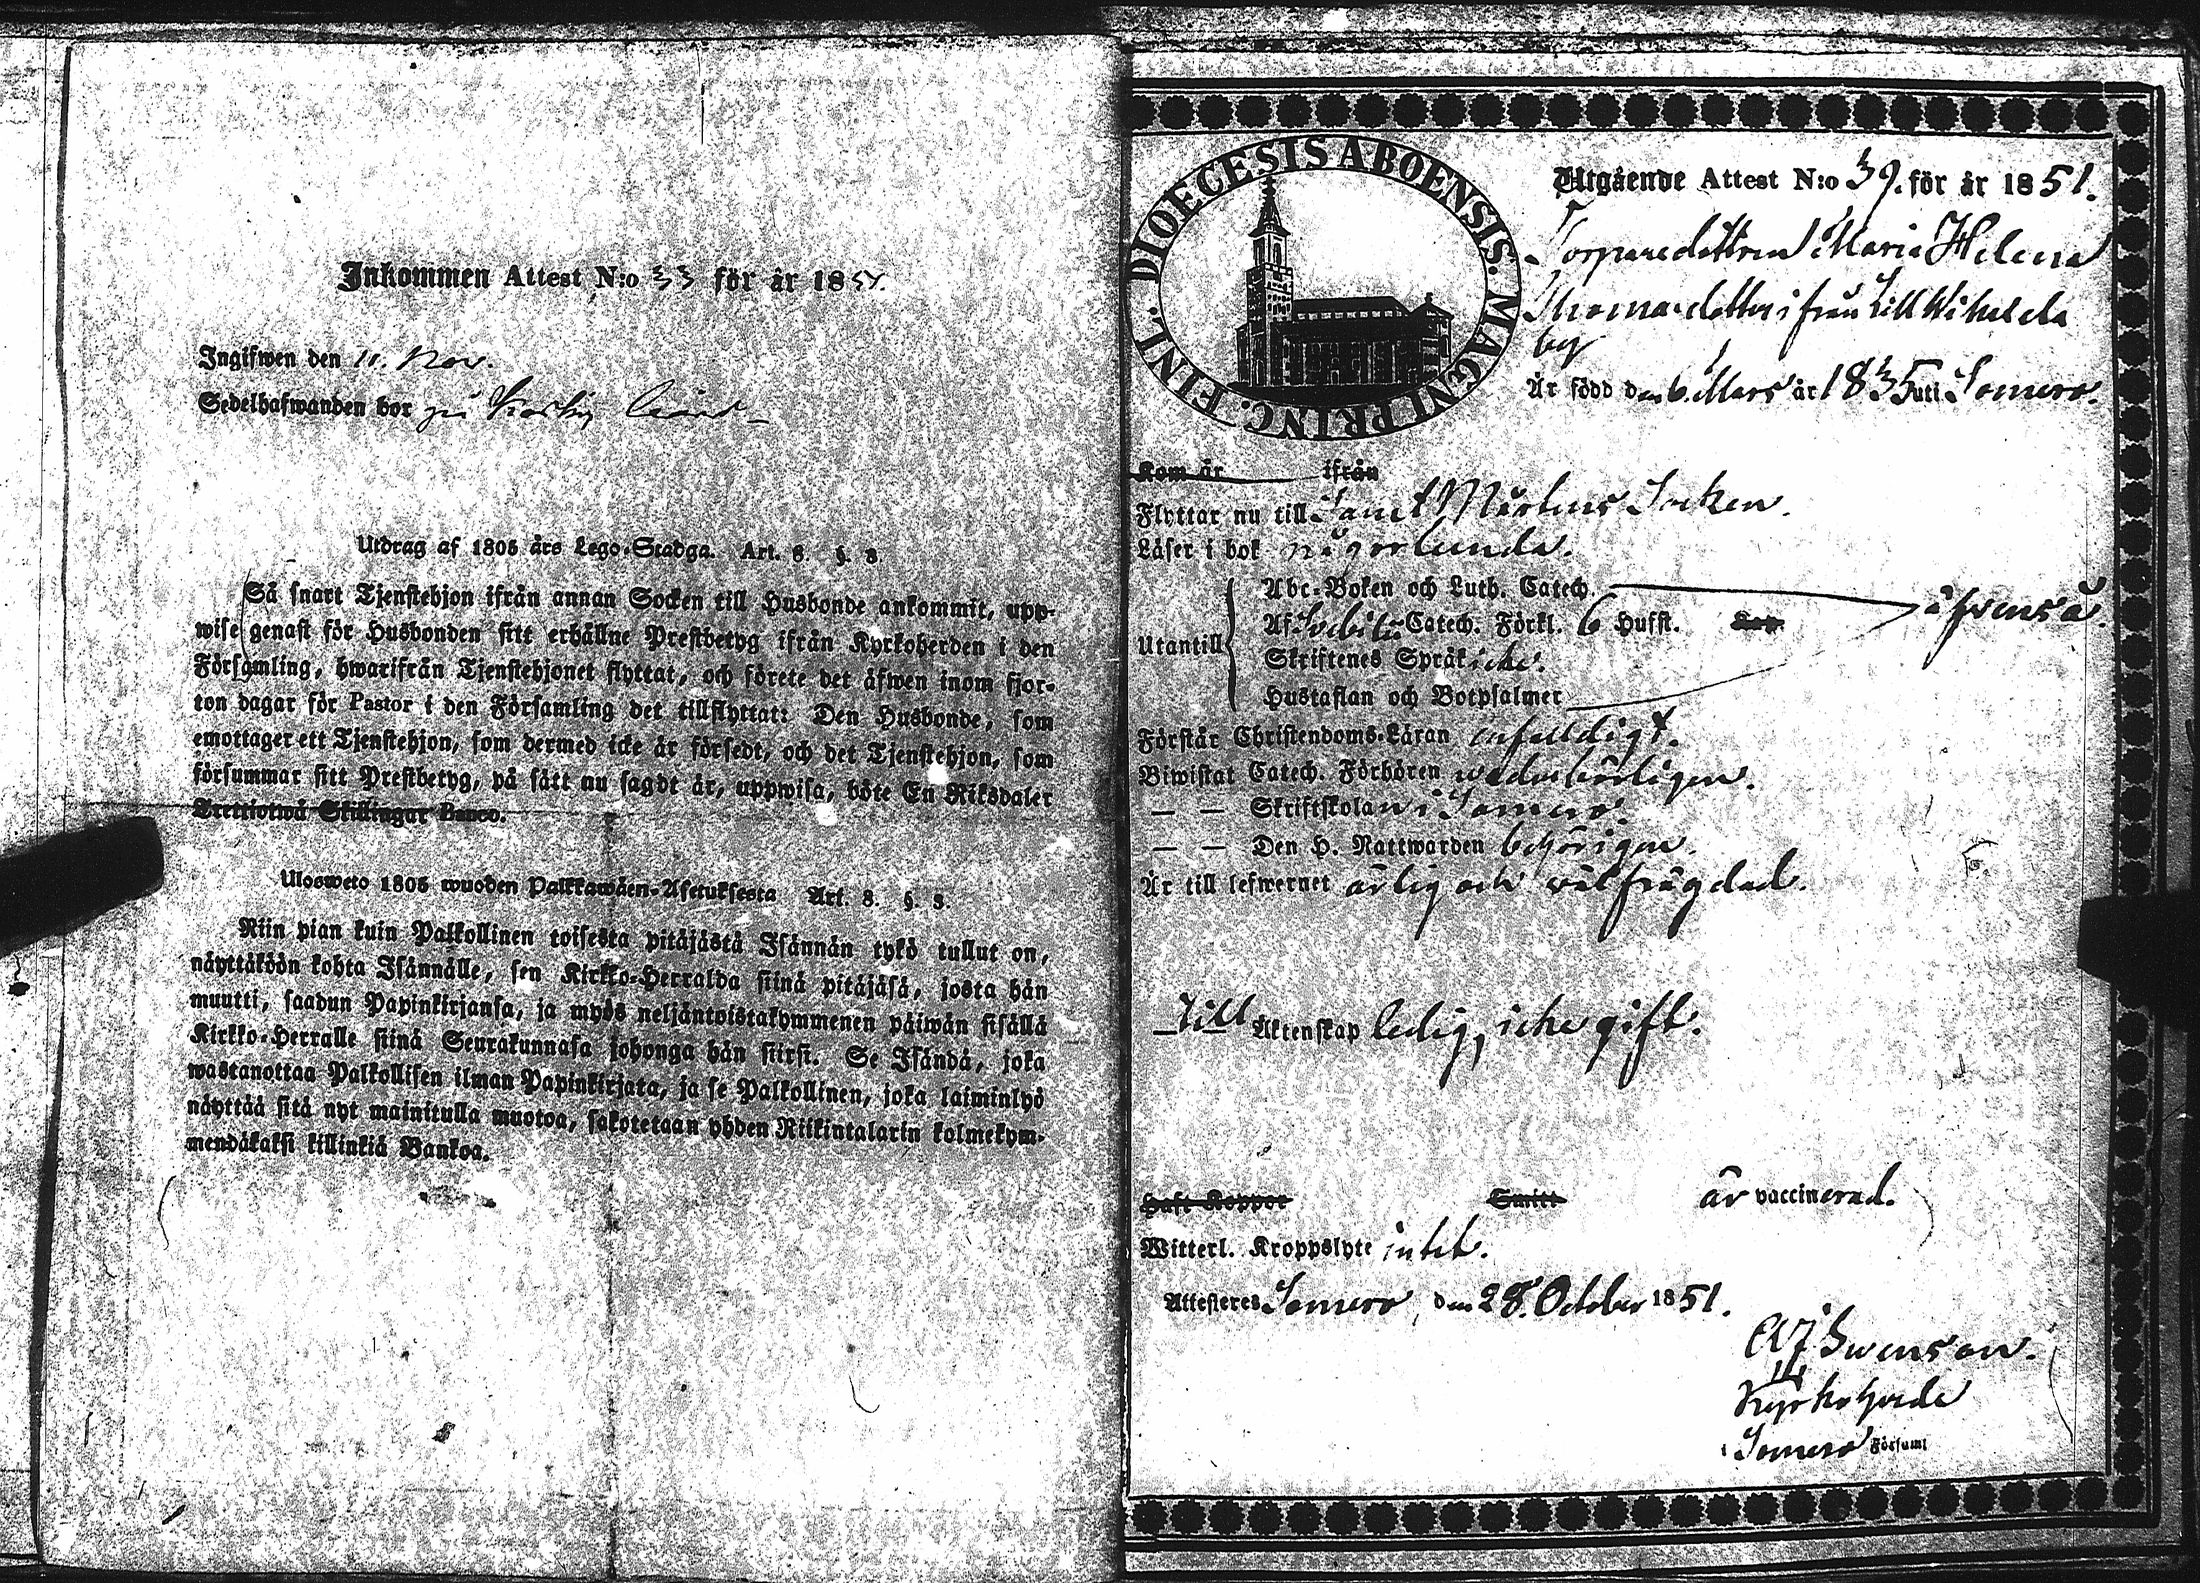 Inkommen Attest N:o 33 för år 1851.
Ingifwen den 11. Nov.
Sedelhafwanden bor på
Utdrag af 1805 års Lego-Stadga. Art. 8. §. 3.
Så snart Tjenstehjon ifrån annan Socken till Husbonde ankommit, upp-
wise genast för Husbonden sitt erhållne Prestbetyg ifrån Kyrkoherden i den
Församling, hwarifrån Tjenstehjonet flyttat, och förete det äfwen inom fjor-
ton dagar för Pastor i den Församling det tillflyttat: Den Husbonde, som
emottager ett Tjenstehjon, som dermed icke är försedt, och det Tjenstehjon, som
försummar sitt Prestbetyg, på sätt nu sagdt är, uppwisa, böte En Riksdaler
Trettiotwå Skillingar Banco.
Ulosweto 1805 wuoden Palkkawäen-Asetuksesta Art. 8. §. 3.
Niin pian kuin Palkollinen toisesta pitäjästä Isännän tykö tullut on,
näyttäköön kohta Isännälle, sen Kirkko-Herralda siinä pitäjäsä, josta hän
muutti, saadun Papinkirjansa, ja myös neljäntoistakymmenen päiwän sisällä
Kirkko-Herralle siinä Seurakunnasa johonga hän siirsi. Se Isändä, joka
wastanottaa Palkollisen ilman Papinkirjata, ja se Palkollinen, joka laiminlyö
näyttää sitä nyt mainitulla muotoa, sakotetaan yhden Riikintalarin kolmekym-
mendäkaksi killinkiä Bankoa.
DIOECESIS ABOENSIS. MAGNI PRINC. FINL.
Utgående Attest N:o 39. för år 1851.
Torparedottren Maria Helena
Thomasdotter ifrån
by
Är född den 6. Mars år 1835 uti Somero.
Kom år ifrån
Flyttar nu till Sanct Mårtens Socken.
Läser i bok någorlunda.
Utantill
Abc-Boken och Luth. Catech.
Af Svebilii Catech. Förkl. 6 Hufst. Kap.
äfvenså.
Skriftenes Språk icke.
Hustaflan och Botpsalmer
Förstår Christendoms-Läran enfaldigt.
Biwistat Catech. Förhören wederbörligen.
— — Skriftskolan i Somero.
— — Den H. Nattwarden behörigen.
Är till lefwernet ärlig och välfrägdad.
Till Äktenskap ledig, icke gift.
Haft Koppor Smitt är vaccinerad.
Witterl. Kroppslyte intet.
Attesteres Somero, den 28. October 1851.
Swenson.
Kyrkoherde
i Somero Församl